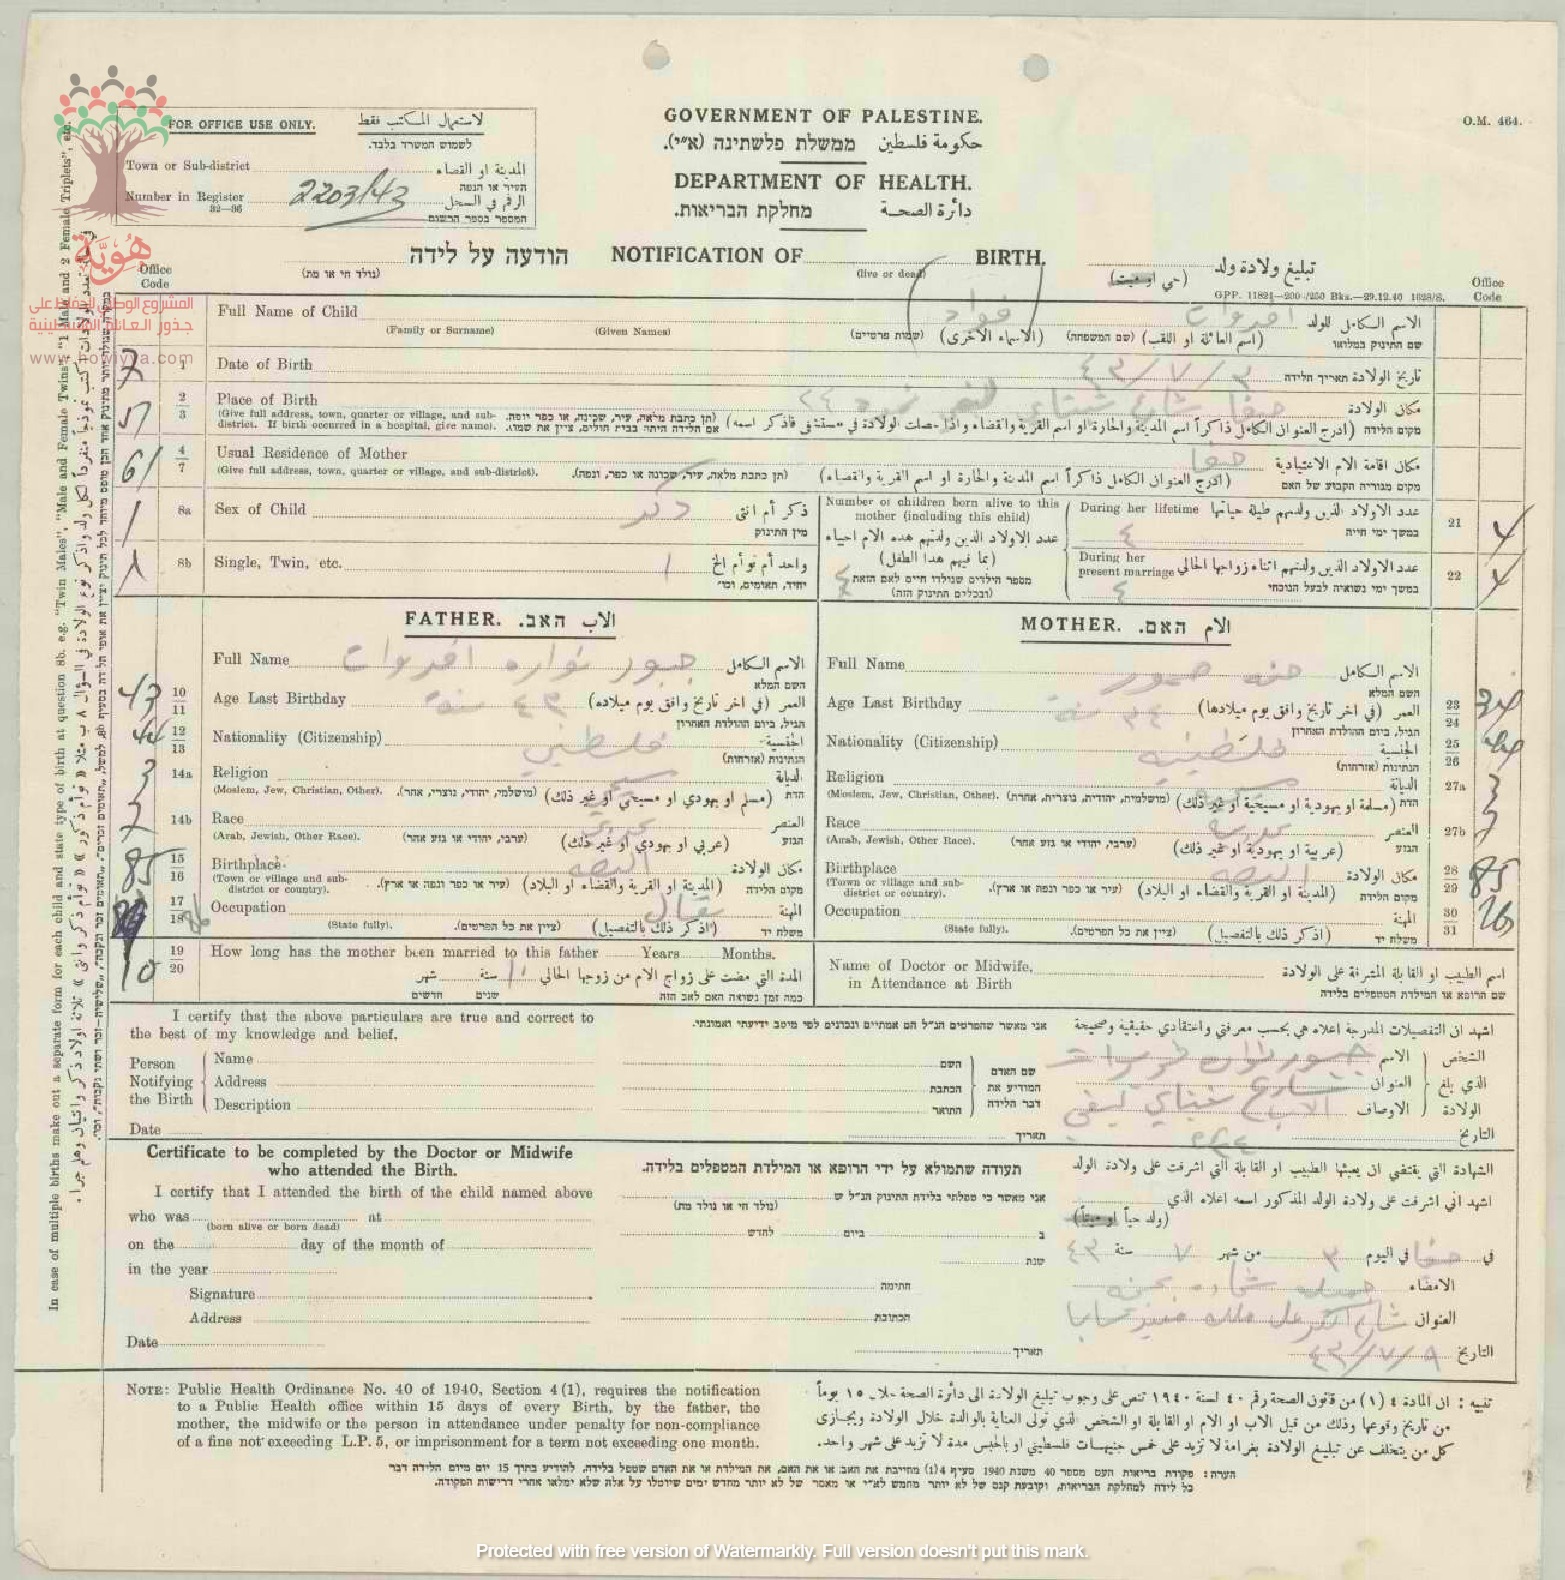 GOVERNMENT OF PALESTINE.
حكومة فلسطين ממשלת פלשתינה (א״י).
DEPARTMENT OF HEALTH.
دائرة الصحة מחלקת הבריאות.
O.M. 464.
FOR OFFICE USE ONLY. لاستعمال المكتب فقط
לשמוש המשרד בלבד.
Town or Sub-district المدينة او القضاء
העיר או הנפה
Number in Register 2203/43 الرقم في السجل
32—36 המספר בספר הרשום
هُوِيَّة
المشروع الوطني للحفاظ على
جذور العائلة الفلسطينية
www.howiyya.com
הודעה על לידה NOTIFICATION OF BIRTH. تبليغ ولادة ولد
(נולד חי או מת) (live or dead) (حي او ميت)
G.P.P. 11824—200/250 Bks.—29.12.40 1628/S.
Office Code Office Code
Full Name of Child فؤاد الاسم الكامل للولد
(Family or Surname) (Given Names) (שמות פרטיים) (الاسماء الاخرى) (שם המשפחה) (اسم العائلة او اللقب) שם התינוק במלואו
7 1 Date of Birth ٤٣/٧/٣ تاريخ الولادة תאריך הלידה
51 2 3 Place of Birth حيفا شارع مكان الولادة
(Give full address, town, quarter or village, and sub-district. If birth occurred in a hospital, give name). (תן כתבת מלאה, עיר, שכונה, או כפר ונפה. אם הלידה היתה בבית חולים, ציין את שמו). (ادرج العنوان الكامل ذاكراً اسم المدينة والحارة او اسم القرية والقضاء واذا حصلت الولادة في مستشفى فاذكر اسمه) מקום הלידה
61 4 7 Usual Residence of Mother حيفا مكان اقامة الام الاعتيادية
(Give full address, town, quarter or village, and sub-district). (תן כתבת מלאה, עיר, שכונה או כפר, ונפה). (ادرج العنوان الكامل ذاكراً اسم المدينة والحارة او اسم القرية والقضاء) מקום מגוריה הקבוע של האם
1 8a Sex of Child ذكر ذكر أم انثى
מין התינוק
8b Single, Twin, etc. ١ واحد أم توأم الخ
יחיד, תאומים, וכו׳
Number of children born alive to this mother (including this child)
عدد الاولاد الذين ولدتهم هذه الام احياء (بما فيهم هذا الطفل) ٤
מספר הילדים שנולדו חיים לאם הזאת (ובכללם התינוק הזה)
During her lifetime عدد الاولاد الذين ولدتهم طيلة حياتها 21 4
٤ במשך ימי חייה
During her present marriage عدد الاولاد الذين ولدتهم اثناء زواجها الحالي 22 4
٤ במשך ימי נשואיה לבעל הנוכחי
FATHER. الاب האב.
Full Name جبور نواره الاسم الكامل
השם המלא
43 10 11 Age Last Birthday ٤٣ سنة العمر (في اخر تاريخ وافق يوم ميلاده)
הגיל, ביום ההולדת האחרון
44 12 13 Nationality (Citizenship) فلسطيني الجنسية
הנתינות (אזרחות)
3 14a Religion مسيحي الديانة
(Moslem, Jew, Christian, Other). (מושלמי, יהודי, נוצרי, אחר). (مسلم او يهودي او مسيحي او غير ذلك) הדת
2 14b Race عربي العنصر
(Arab, Jewish, Other Race). (ערבי, יהודי או גזע אחר) (عربي او يهودي او غير ذلك) הגזע
85 15 16 Birthplace البصه مكان الولادة
(Town or village and sub-district or country). (עיר או כפר ונפה או ארץ). (المدينة او القرية والقضاء او البلاد) מקום הלידה
17 18 Occupation بقال المهنة
(State fully). (ציין את כל הפרטים). (اذكر ذلك بالتفصيل) משלח יד
10 19 20 How long has the mother been married to this father Years Months.
المدة التي مضت على زواج الام من زوجها الحالي سنة شهر
כמה זמן נשואה האם לאב הזה שנים חדשים
MOTHER. الام האם.
Full Name حنه الاسم الكامل
השם המלא
Age Last Birthday ٣٤ سنة العمر (في اخر تاريخ وافق يوم ميلادها) 23 24 34
הגיל, ביום ההולדת האחרון
Nationality (Citizenship) فلسطينيه الجنسية 25 26
הנתינות (אזרחות)
Religion مسيحية الديانة 27a 3
(Moslem, Jew, Christian, Other). (מושלמית, יהודית, נוצרית, אחרת). (مسلمة او يهودية او مسيحية او غير ذلك) הדת
Race عربية العنصر 27b 2
(Arab, Jewish, Other Race). (ערבי, יהודי או גזע אחר) (عربية او يهودية او غير ذلك) הגזע
Birthplace البصه مكان الولادة 28 29 85
(Town or village and sub-district or country). (עיר או כפר ונפה או ארץ). (المدينة او القرية والقضاء او البلاد) מקום הלידה
Occupation المهنة 30 31 26
(State fully). (ציין את כל הפרטים). (اذكر ذلك بالتفصيل) משלח יד
Name of Doctor or Midwife, in Attendance at Birth اسم الطبيب او القابلة المشرفة على الولادة
שם הרופא או המילדת המטפלים בלידה
I certify that the above particulars are true and correct to the best of my knowledge and belief.
אני מאשר שהפרטים הנ״ל הם אמתיים ונכונים לפי מיטב ידיעתי ואמונתי.
اشهد ان التفصيلات المدرجة اعلاه هي بحسب معرفتي واعتقادي حقيقية وصحيحة
Person Notifying the Birth
Name השם جبور الاسم
Address הכתבת شارع العنوان
Description התואר الاب الاوصاف
שם האדם המודיע את דבר הלידה
الشخص الذي بلغ الولادة
Date תאריך التاريخ
Certificate to be completed by the Doctor or Midwife who attended the Birth.
תעודה שתמולא על ידי הרופא או המילדת המטפלים בלידה.
الشهادة التي يقتضي ان يعبئها الطبيب او القابلة التي اشرفت على ولادة الولد
I certify that I attended the birth of the child named above
אני מאשר כי טפלתי בלידת התינוק הנ״ל ש
(נולד חי או נולד מת)
اشهد اني اشرفت على ولادة الولد المذكور اسمه اعلاه الذي
(ولد حياً او ميتاً)
who was at
(born alive or born dead)
on the day of the month of ב ביום לחדש
في حيفا في اليوم ٣ من شهر ٧ سنة ٤٣
in the year שנת
Signature חתימה جميله شحاده الامضاء
Address הכתובת شارع العنوان
Date תאריך ٤٣/٧/٨ التاريخ
NOTE: Public Health Ordinance No. 40 of 1940, Section 4 (1), requires the notification
to a Public Health office within 15 days of every Birth, by the father, the
mother, the midwife or the person in attendance under penalty for non-compliance
of a fine not exceeding L.P. 5, or imprisonment for a term not exceeding one month.
تنبيه : ان المادة ٤ (١) من قانون الصحة رقم ٤٠ لسنة ١٩٤٠ تنص على وجوب تبليغ الولادة الى دائرة الصحة خلال ١٥ يوماً
من تاريخ وقوعها وذلك من قبل الاب او الام او القابلة او الشخص الذي تولى العناية بالوالدة خلال الولادة ويجازى
كل من يتخلف عن تبليغ الولادة بغرامة لا تزيد على خمس جنيهات فلسطيني او بالحبس مدة لا تزيد على شهر واحد.
הערה: פקודת בריאות העם מספר 40 משנת 1940 סעיף 4(1) מחייבת את האב או את האם, את המילדת או את האדם שטפל בלידה, להודיע בתוך 15 יום מיום הלידה דבר
כל לידה למחלקת הבריאות, וקובעת קנס של לא יותר מחמש לא״י או מאסר של לא יותר מחדש ימים שיוטלו על אלה שלא ימלאו אחרי דרישות הפקודה.
In case of multiple births make out a separate form for each child and state type of birth at question 8b. e.g. "Twin Males", "Male and Female Twins", "1 Male and 2 Female Triplets", etc.
Protected with free version of Watermarkly. Full version doesn't put this mark.